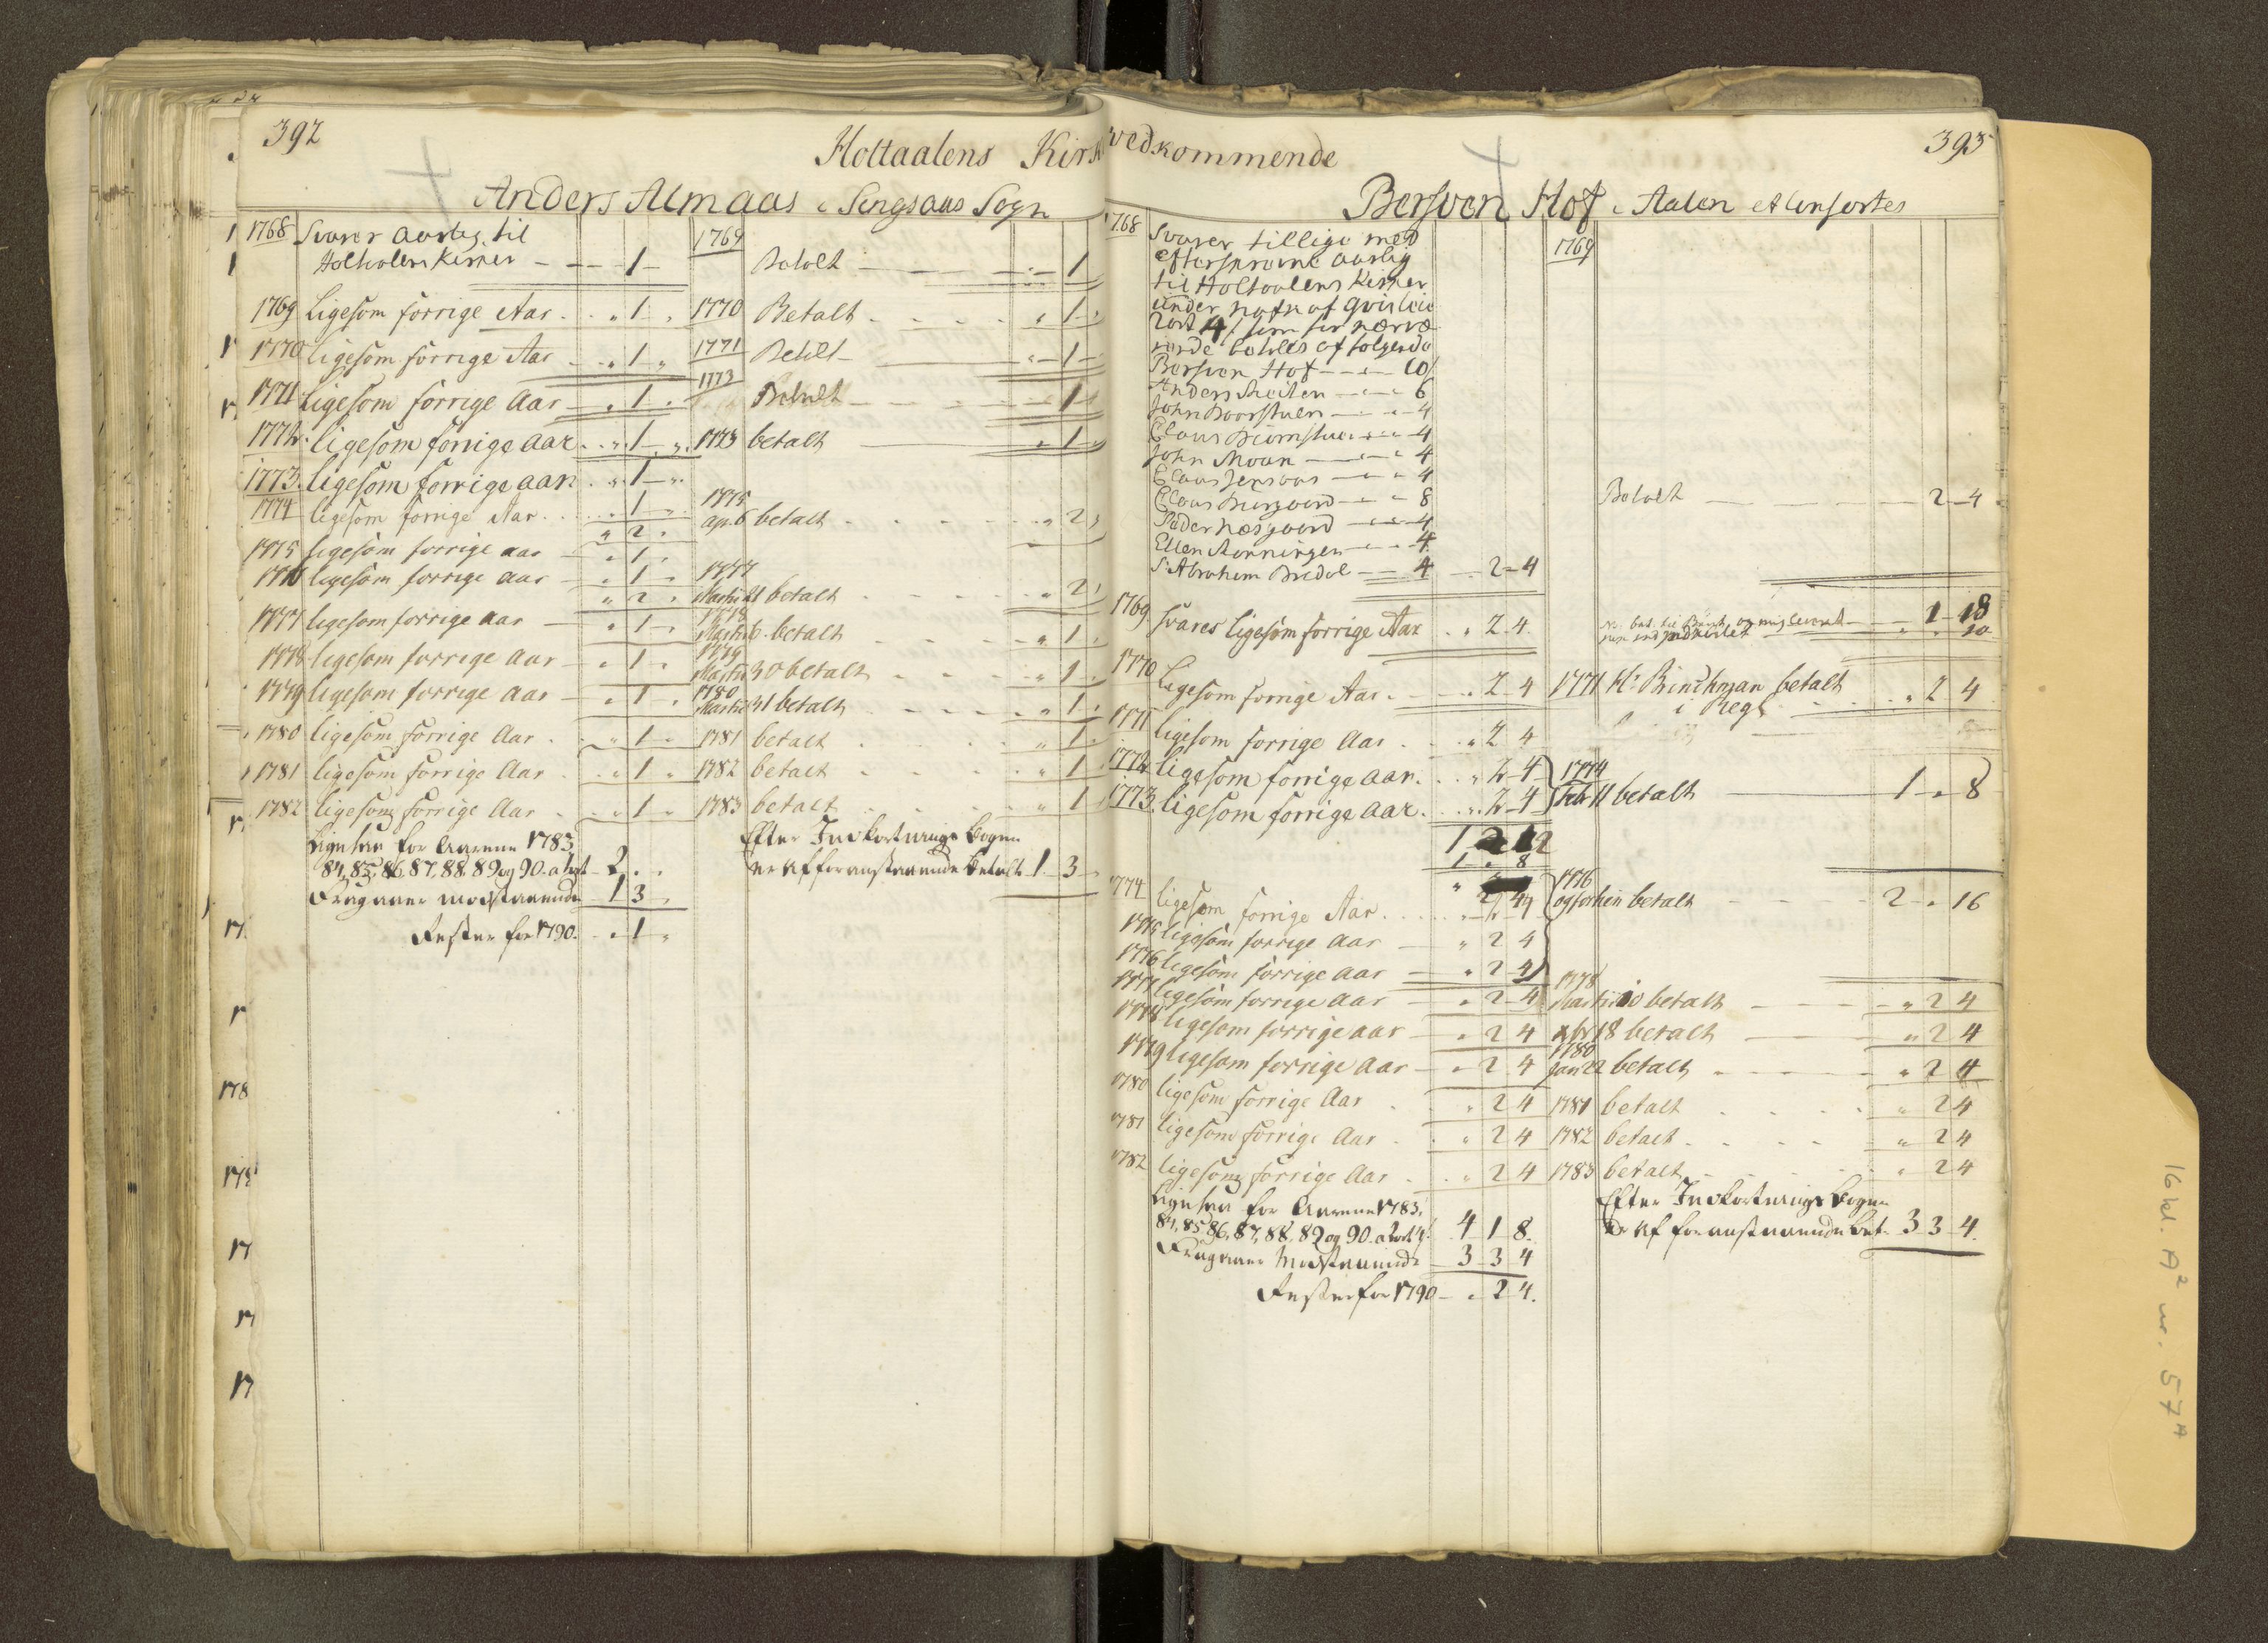 392
Holtaalens Kirk
Anders Almaas i Singsaas Sogn
1768 Svarer aarlig til
Holtalens Kirker - 1 -
1769 Betalt - 1
1769 Ligesom forrige Aar . . " 1 .
1770 Betalt . . . . " 1 -
1770 ligesom forrige Aar . " 1 "
1771 Betalt - " 1 -
1771 ligesom forrige Aar - . 1 .
1773 Betalt - 1 -
1772 ligesom forrige aar . . " 1 " .
1773 betalt " 1 "
1773 ligesom forrige aar . " 1 "
1774 ligesom forrige Aar . . . 1 " .
" 2 "
1775
apr. 6 betalt . . . . . " 2 "
1775 ligesom forrige aar - " 1 "
1776 ligesom forrige aar - " 1 -
" 2 "
1777
Martii 21 betalt - - - - " 2 "
1777 ligesom forrige aar - " 1 "
1778
Martii 6. betalt - - - " 1 "
1778 ligesom forrige aar - " 1 "
1779
Martii 30 betalt - - - " 1 "
1779 ligesom forrige aar - " 1 "
1780
Martii 31 betalt - - - " 1 "
1780 ligesom forrige Aar . . " 1 "
1781 betalt . . . . " 1 "
1781 ligesom forrige Aar . . " 1 "
1782 betalt . . . . " 1 "
1782 ligesom forrige Aar . . " 1 "
1783 betalt . . . . " 1
Ligesaa for Aarene 1783
84, 85, 86, 87, 88, 89 og 90. a 1 ort 2 . .
Fragaaer modstaaende 1 3 "
Rester for 1790. - " 1 "
Efter Indkortnings Bogen
er af foranstaaende betalt 1 3 -
vedkommende
393
Bersven Hof i Aalen
1768 Svarer tillige med
aarlig
til Holtaalens Kirker
under nafn af
4 s som for nærvæ-
rende betales af følgende
Bersven Hof - - - 10
Anders - - - 6
John - - - 4
Claus - - - 4
John Moan - - - 4
Claus - - - 4
Claus - - - 8
Peder Næsgaard - - - 4
Ellen Rønningen - - - 4
Abraham Bredal - - 4 - 2 - 4
1769
Betalt - - - 2 - 4
1769 Svares ligesom forrige Aar . " 2 4
1 18
10
1770 Ligesom forrige Aar . - " 2 4
1771 Hr. Brinchman betalt
i Regl. - - " 2 4
1771 ligesom forrige Aar . . " 2 4
1772 ligesom forrige aar . . " 2 4
1773 ligesom forrige aar . . " 2 4
1774
Feb. 11 betalt - 1 " 8
1 2 12
1 " 8
" 2 4
1774 ligesom forrige Aar . . . " 2 4
1775 ligesom forrige aar - " 2 4
1776 ligesom forrige aar - " 2 4
1776
og forhin betalt - - - 2 " 16
1777 ligesom forrige aar - " 2 4
1778
Martii 10 betalt - - - " 2 4
1778 ligesom forrige aar - " 2 4
xbr 18 betalt - - " 2 4
1779 ligesom forrige aar - " 2 4
1780
Jan 22 betalt - - - " 2 4
1780 ligesom forrige Aar . . " 2 4
1781 betalt . . . . " 2 4
1781 ligesom forrige Aar . . " 2 4
1782 betalt . . . . " 2 4
1782 ligesom forrige Aar . . " 2 4
1783 betalt . . . . " 2 4
Ligesaa for Aarene 1783,
84, 85, 86, 87, 88, 89 og 90. a 2 ort 4 s. 4 1 8.
Fragaaer Modstaaende - 3 3 4
Rester for 1790 - " 2 4.
Efter Indkortnings Bogen
er af foranstaaende bet. 3 3 4.
16 kl. A² nr. 57ᴬ